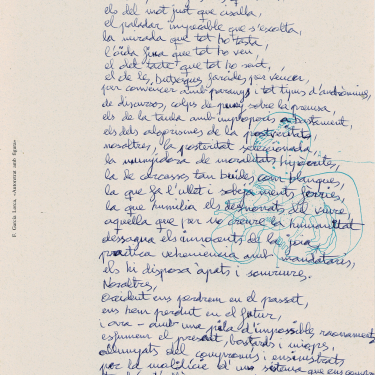 els del mot just que cisalla,
el paladar impecable que s'escolta,
la mirada que tot ho tasta,
l'oïda fina que tot ho veu,
el del tacte que tot ho sent,
el de les butxaques farcides per vèncer,
per convèncer amb paranys i tot tipus d'andròmines,
de discursos, colps de puny sobre la premsa,
els de la taula amb improperis a bastament,
els dels algorismes de la postveritat,
nosaltres, la posteritat seleccionada,
la munyidosa de moralitats hipòcrites,
la de carcasses tan buides com blanques,
la que fa l'ullet i sobepuments fèrries,
la que humilia els desnonats del viure
aquella que per no creure la humanitat
dessagna els innocents de la joia,
practica vehemència amb mandataris,
els hi disposa àpats i somriures.
Nosaltres,
Occident ens perdrem en el passat,
ens hem perdut en el futur,
i ara - amb una pila d'impossibles raonaments
esfumem el present, bastards i miops,
allunyats del compromís, ensinistrats
per la malícia d'un sistema que ens
F. García Lorca, «Autorretrat amb figura»